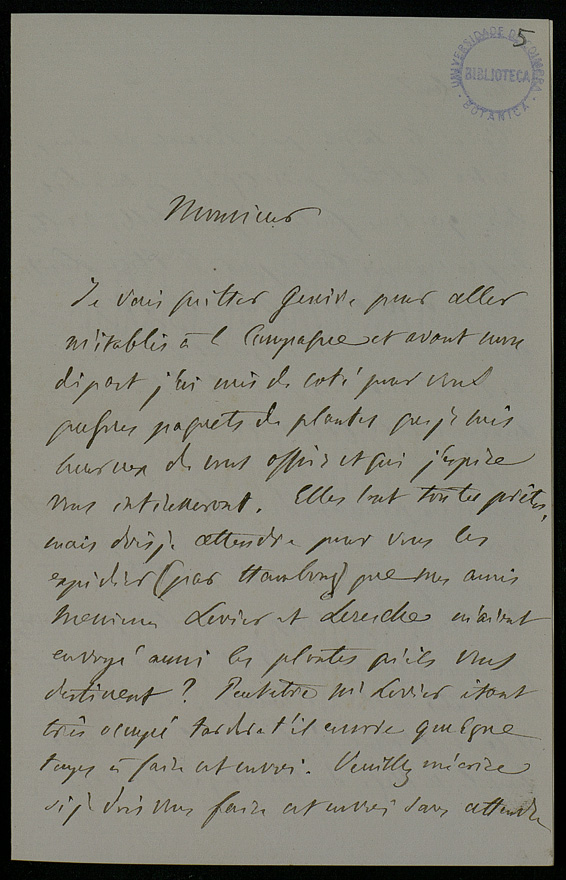 5
UNIVERSIDADE DE COIMBRA
BIBLIOTECA
BOTANICA
Monsieur
Je vais quitter Genève pour aller
m'établir à la Campagne et avant mon
départ j'ai mis de coté pour vous
quelques paquets de plantes que je suis
heureux de vous offrir et qui j'espère
vous intéresseront. Elles sont toutes prêtes,
mais dois je attendre pour vous les
expédier (par Hambourg) que mes amis
Messieurs Levier et Leresche m'aient
envoyé aussi les plantes qu'ils vous
destinent ? Peutêtre Mr Levier étant
très occupé tardera t'il encore quelque
temps à faire cet envoi. Veuillez m'écrire
si je dois vous faire cet envoi sans attendre